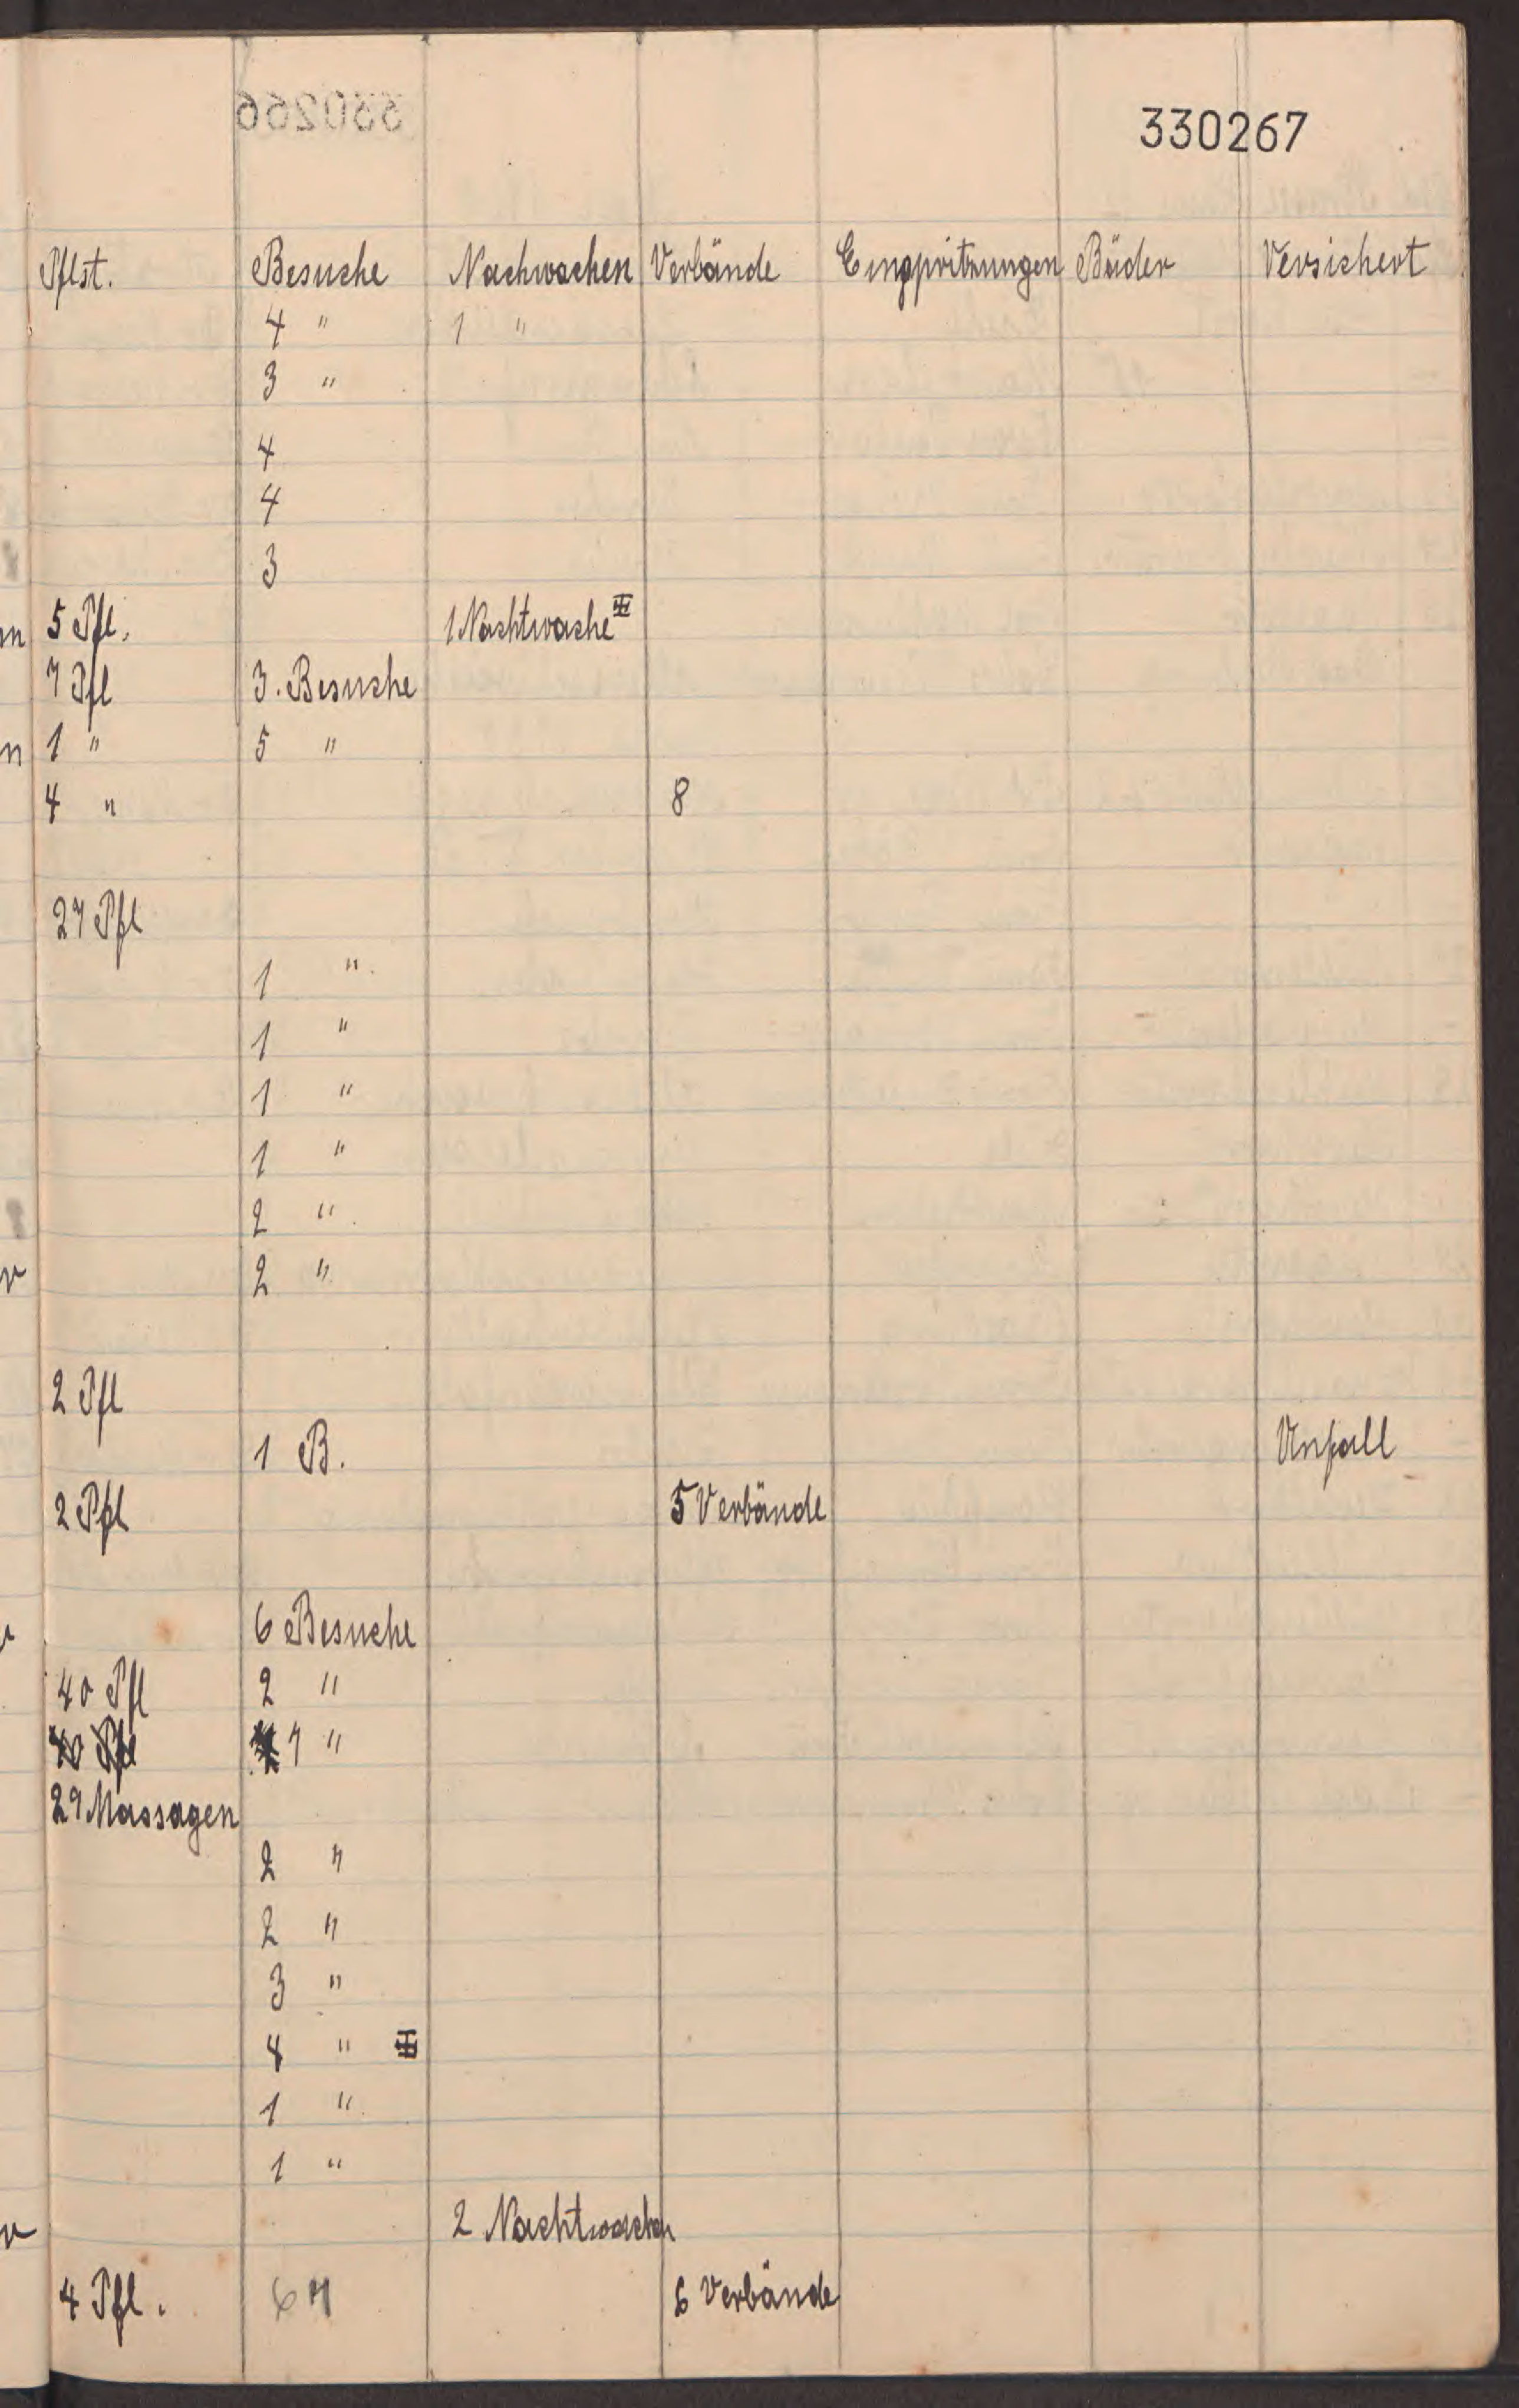 330267
Pflst. Besuche Nachwachen Verbände Einspritzungen Bäder Versichert
4 " 1 "
3 "
4
4
3
5 Pfl. 1 Nachtwache
7 Pfl 3. Besuche
1 " 5 "
4 " 8
27 Pfl
1 "
1 "
1 "
1 "
2 "
2 "
2 Pfl
1 B. Unfall
2 Pfl 5 Verbände
6 Besuche
40 Pfl 2 "
40 Pfl 7 "
29 Massagen
2 "
2 "
3 "
4 "
1 "
1 "
2 Nachtwachen
4 Pfl. 67 6 Verbände